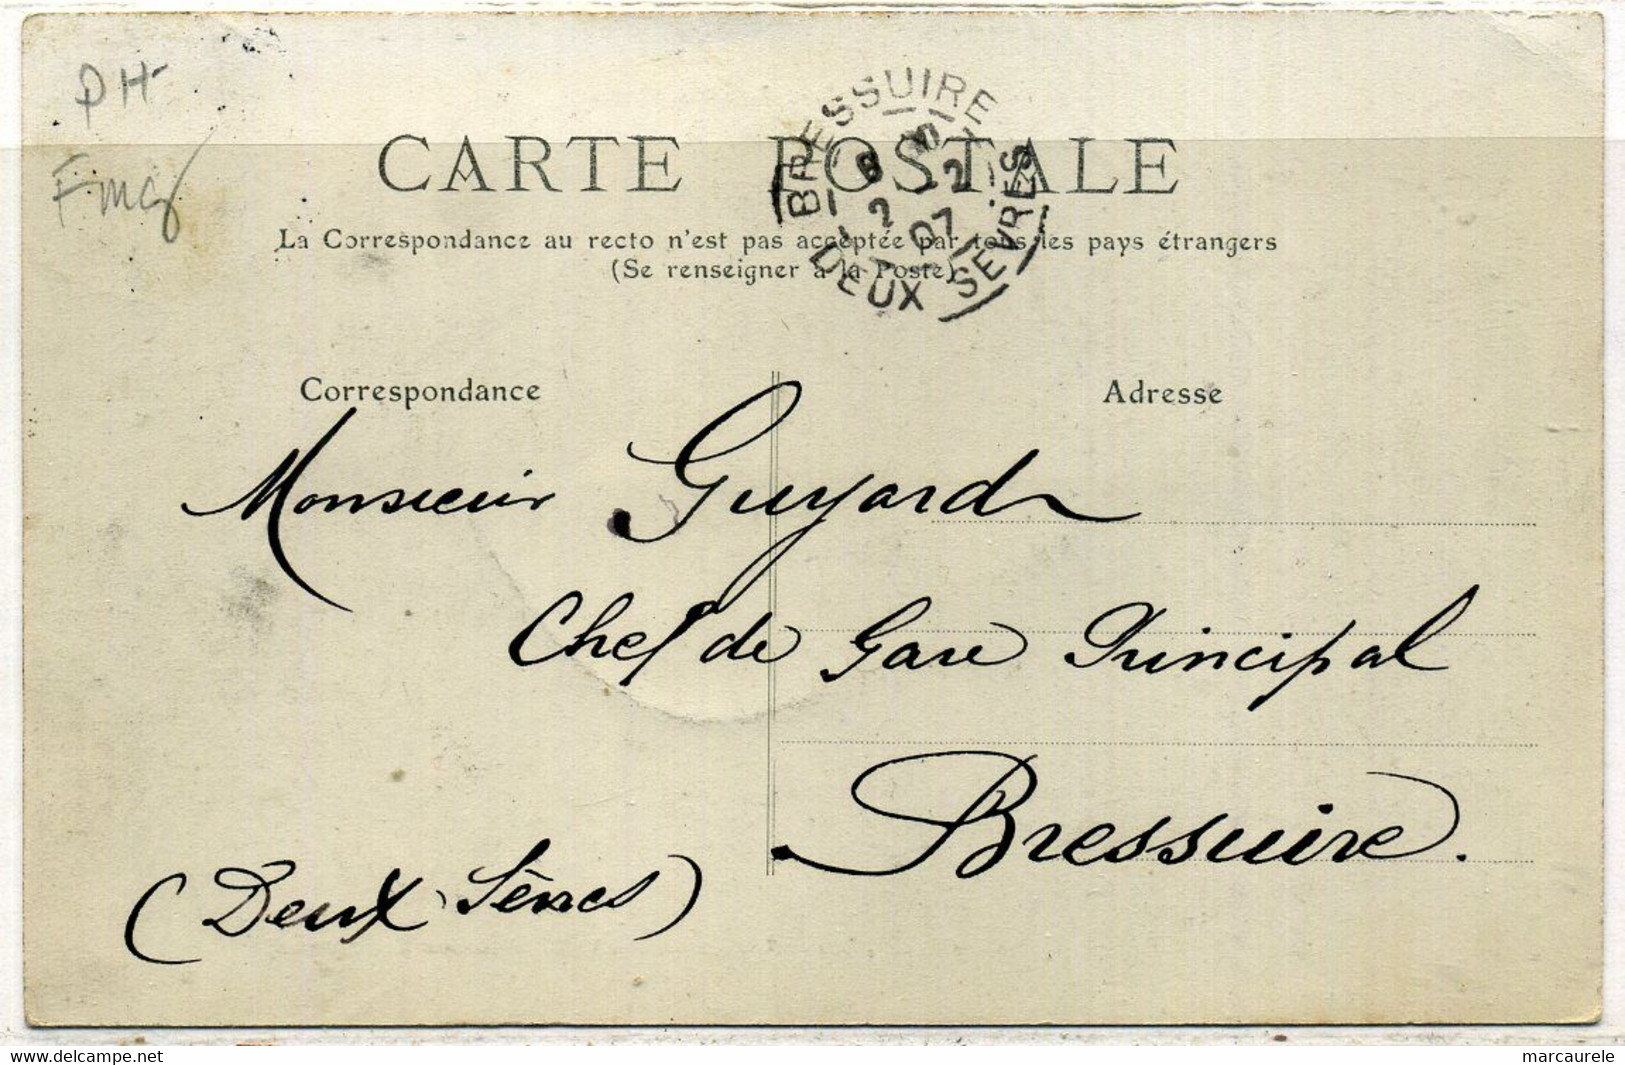 PH
Fmg
CARTE POSTALE
BRESSUIRE
8 2
2 07
DEUX SEVRES
La Correspondance au recto n'est pas acceptée par tous les pays étrangers
(Se renseigner à la Poste)
Correspondance
Adresse
Monsieur Guyard
Chef de Gare Principal
Bressuire.
(Deux Sèvres)
www.delcampe.net
marcaurele